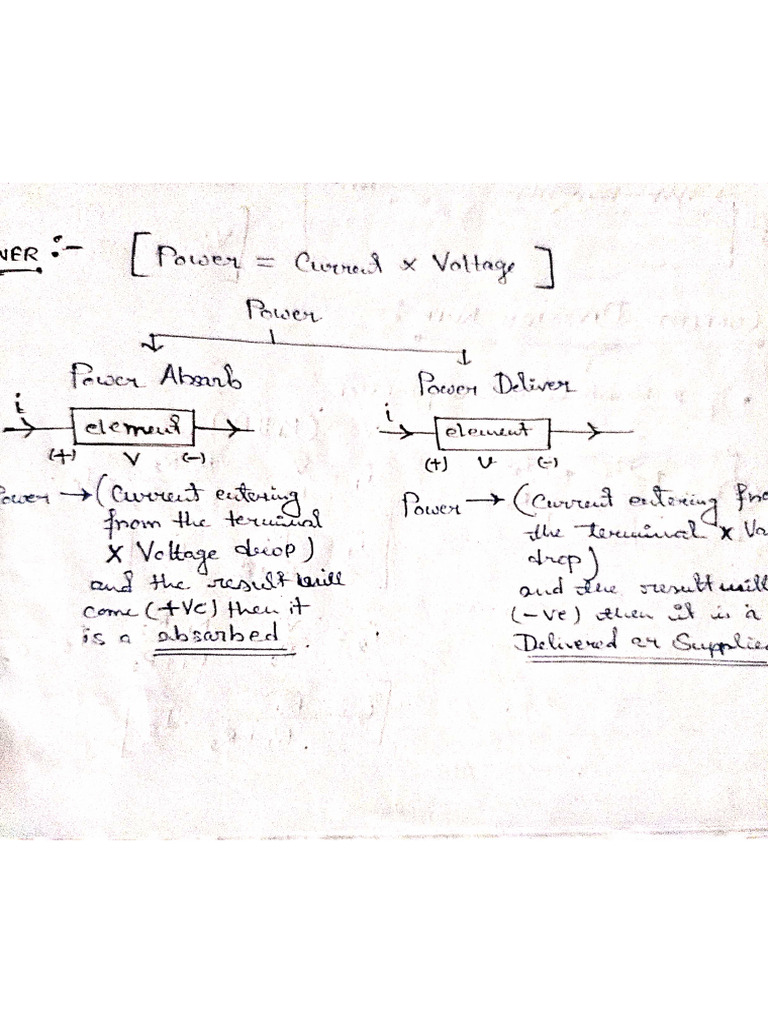 WER :-
[ Power = Current × Voltage ]
Power
Power Absarb
i
element
(+) V (-)
Power → (Current entering
from the terminal
× Voltage drop)
and the result will
come (+Ve) then it
is a absarbed.
Power Deliver
i
element
(+) V (-)
Power → (Current entering fro
the terminal × Vo
drop)
and the result will
(-ve) then it is a
Delivered or Supplied